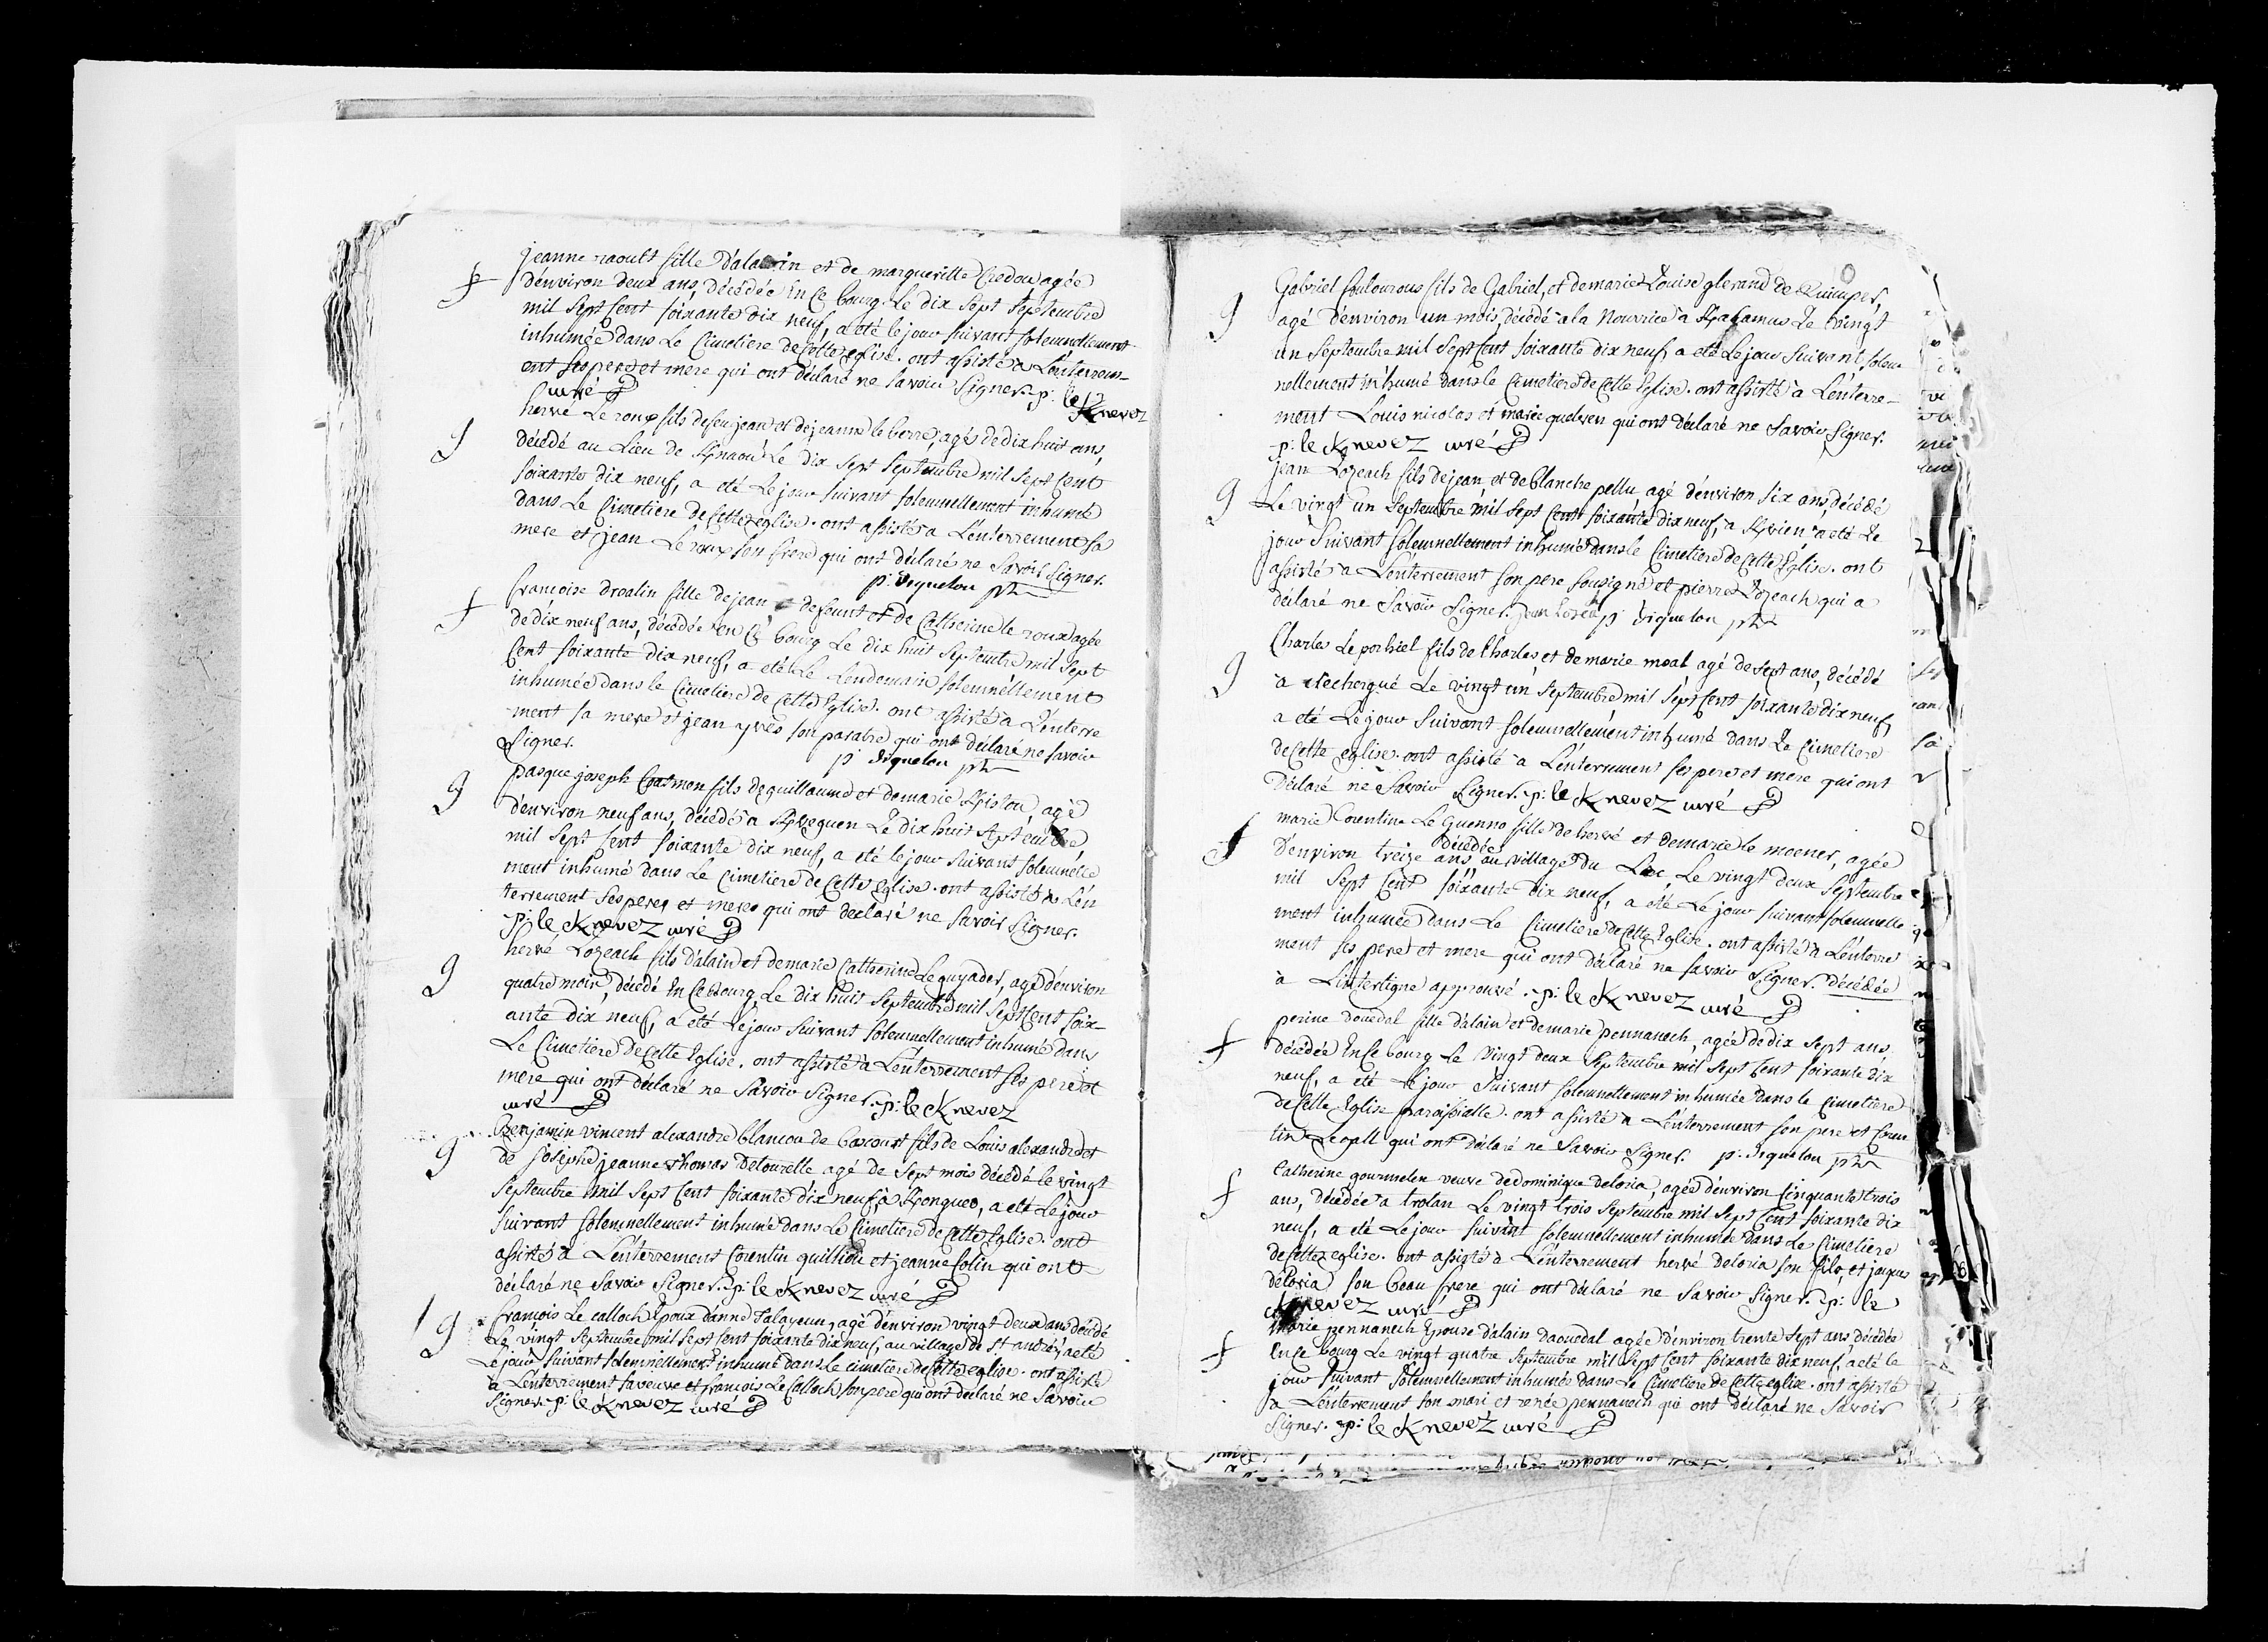 jeanne raoult fille d'alain et de margueritte Credou agée
f d'environ deux ans, décédée en ce bourg le dix sept septembre
mil sept cent soixante dix neuf, a été le jour suivant solemnellement
inhumée dans le cimetiere de cette eglise. ont assisté a l'enterrem-
ent ses pere et mere qui ont déclaré ne savoir signer. p: le
curé Knevez
hervé Le roux fils de feu jean et de jeanne le berre, agé de dix huit ans,
g décédé au Lieu de le dix sept septembre mil sept cent
soixante dix neuf, a été le jour suivant solemnellement inhumé
dans le cimetiere de cette eglise. ont assisté a l'enterrement sa
mere et jean Le roux son frere qui ont déclaré ne savoir signer.
p. viquelou ptre
francoise drealin fille de jean defunt et de Catherine le roux agée
f de dix neuf ans, décédée en ce bourg le dix huit septembre mil sept
cent soixante dix neuf, a été le lendemain solemnellement
inhumée dans le cimetiere de cette eglise. ont assisté a l'enterre
ment sa mere et jean yves son paratre qui ont déclaré ne savoir
signer. p viquelou ptre
pasque joseph Coatmen fils de guillaume et de marie agé
g d'environ neuf ans, décédé a le dix huit septembre,
mil sept cent soixante dix neuf, a été le jour suivant solemnelle
ment inhumé dans le cimetiere de cette eglise. ont assisté a l'en
terrement ses pere et mere qui ont declaré ne savoir signer.
p: le Knevez curé
hervé Lozeach fils d'alain et de marie Catherine Le guyader, agé d'environ
g quatre mois, décédé en ce bourg, le dix huit septembre mil sept cent soix-
ante dix neuf, a été le jour suivant solemnellement inhumé dans
le cimetiere de cette Eglise. ont assisté a l'enterrement ses pere et
mere qui ont déclaré ne savoir signer. p: le Knevez
curé
Benjamin vincent alexandre blancon de bocourt fils de Louis alexandre et
g de josephe jeanne thomas Detourelle agé de sept mois décédé le vingt
septembre mil sept cent soixante dix neuf, a a été le jour
suivant solemnellement inhumé dans le cimetiere de cette eglise. ont
assisté a l'enterrement Corentin quilliou et jeanne Colin qui ont
déclaré ne savoir signer. p: le Knevez curé
g francois Le calloch Epoux d'anne Talayeun, agé d'environ vingt deux ans décédé
le vingt septembre mil sept cent soixante dix neuf, au village de st andré, a été
le jour suivant solemnellement inhumé dans le cimetiere de cette eglise. ont assisté
a l'enterrement sa veuve et francois Le Calloch son pere qui ont declaré ne savoir
signer. p: le Knevez curé
Gabriel Coulourous fils de Gabriel, et de marie Louise glerand de Quimper,
g agé d'environ un mois, décédé a la Nourrice a le vingt
un septembre mil sept cent soixante dix neuf, a été le jour suivant solem
nellement inhumé dans le cimetiere de cette Eglise. ont assisté a l'enterre-
ment Louis nicolas et marie quelven qui ont déclaré ne savoir signer.
p: le Knevez curé
jean Lozeach fils de jean et de blanche pellu agé d'environ six ans décédé
g Le vingt un septembre mil sept cent soixante dix neuf, a a été le
jour suivant solemnellement inhumé dans le cimetiere de cette Eglise. ont
assisté a l'enterrement son pere sousigné et pierre Lozeach qui a
déclaré ne savoir signer. p viquelou ptre
Charles Le porhiel fils de Charles et de marie moal agé de sept ans, décédé
g a le vingt un septembre mil sept cent soixante dix neuf,
a été le jour suivant solemnellement inhumé dans le cimetiere
de cette eglise. ont assisté a l'enterrement ses pere et mere qui ont
déclaré ne savoir signer. p: le Knevez curé
marie Corentine Le Guenno fille de hervé et de marie le moener, agée
décédée
f d'environ treize ans au village du Lac le vingt deux septembre
mil sept cent soixante dix neuf, a été le jour suivant solemnelle
ment inhumée dans le cimetiere de cette Eglise. ont assisté a l'enterre
ment ses pere et mere qui ont déclaré ne savoir signer. décédée
à l'interligne approuvé. p: le Knevez curé
perine Douedal fille d'alain et de marie pennanech, agée de dix sept ans
f décédée en ce bourg le vingt deux septembre mil sept cent soixante dix
neuf, a été le jour suivant solemnellement inhumée dans le cimetiere
de cette Eglise paroissialle. ont assisté a l'enterrement son pere et Coren
tin Le gall qui ont déclaré ne savoir signer. p. viquelou ptre
Catherine gourmelen veuve de dominique deloria, agée d'environ cinquante trois
f ans, décédée a trolan le vingt trois septembre mil sept cent soixante dix
neuf, a été le jour suivant solemnellement inhumée dans le cimetiere
de cette eglise. ont assisté a l'enterrement hervé deloria son fils, et jacques
deloria son beau frere qui ont déclaré ne savoir signer. p: le
Knevez curé
marie pennanech Epouse d'alain daouedal agée d'environ trente sept ans, décédée
f en ce bourg le vingt quatre septembre mil sept cent soixante dix neuf, a été le
jour suivant solemnellement inhumée dans le cimetiere de cette eglise. ont assisté
a l'enterrement son mari et renée pennanech qui ont déclaré ne savoir
signer. p: le Knevez curé